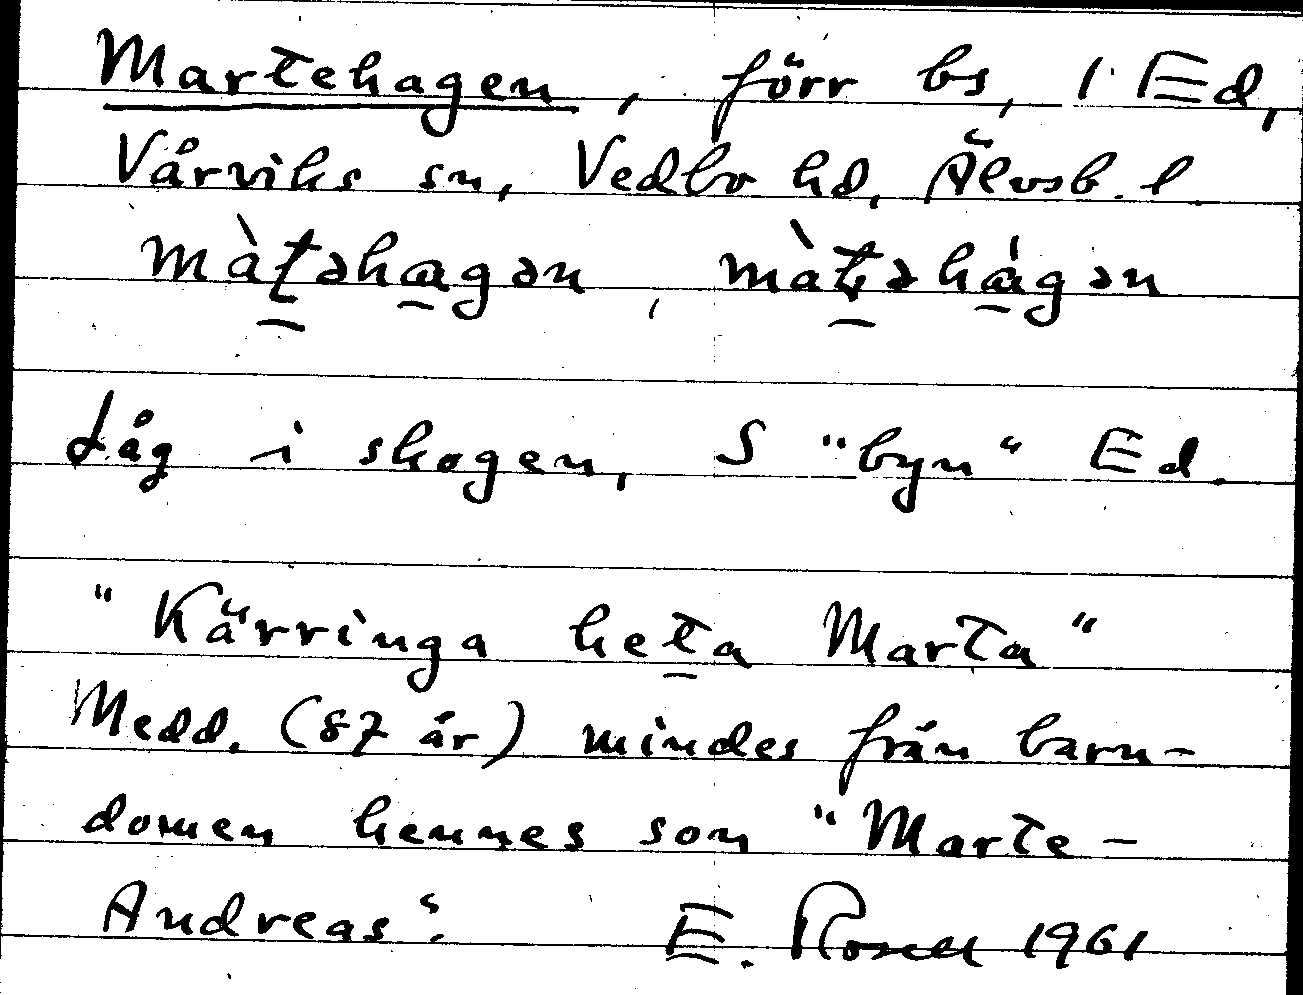 Martehagen, förr bs, 1 Ed,
Vårviks sn, Vedbo hd, Älvsb. l
màʈəhagən, màʈəhágən
Låg i skogen, S "byn" Ed.
"Kärringa heta Marta"
Medd. (87 år) mindes från barn-
domen hennes son "Marte-
Andreas".
E. Rosell 1961